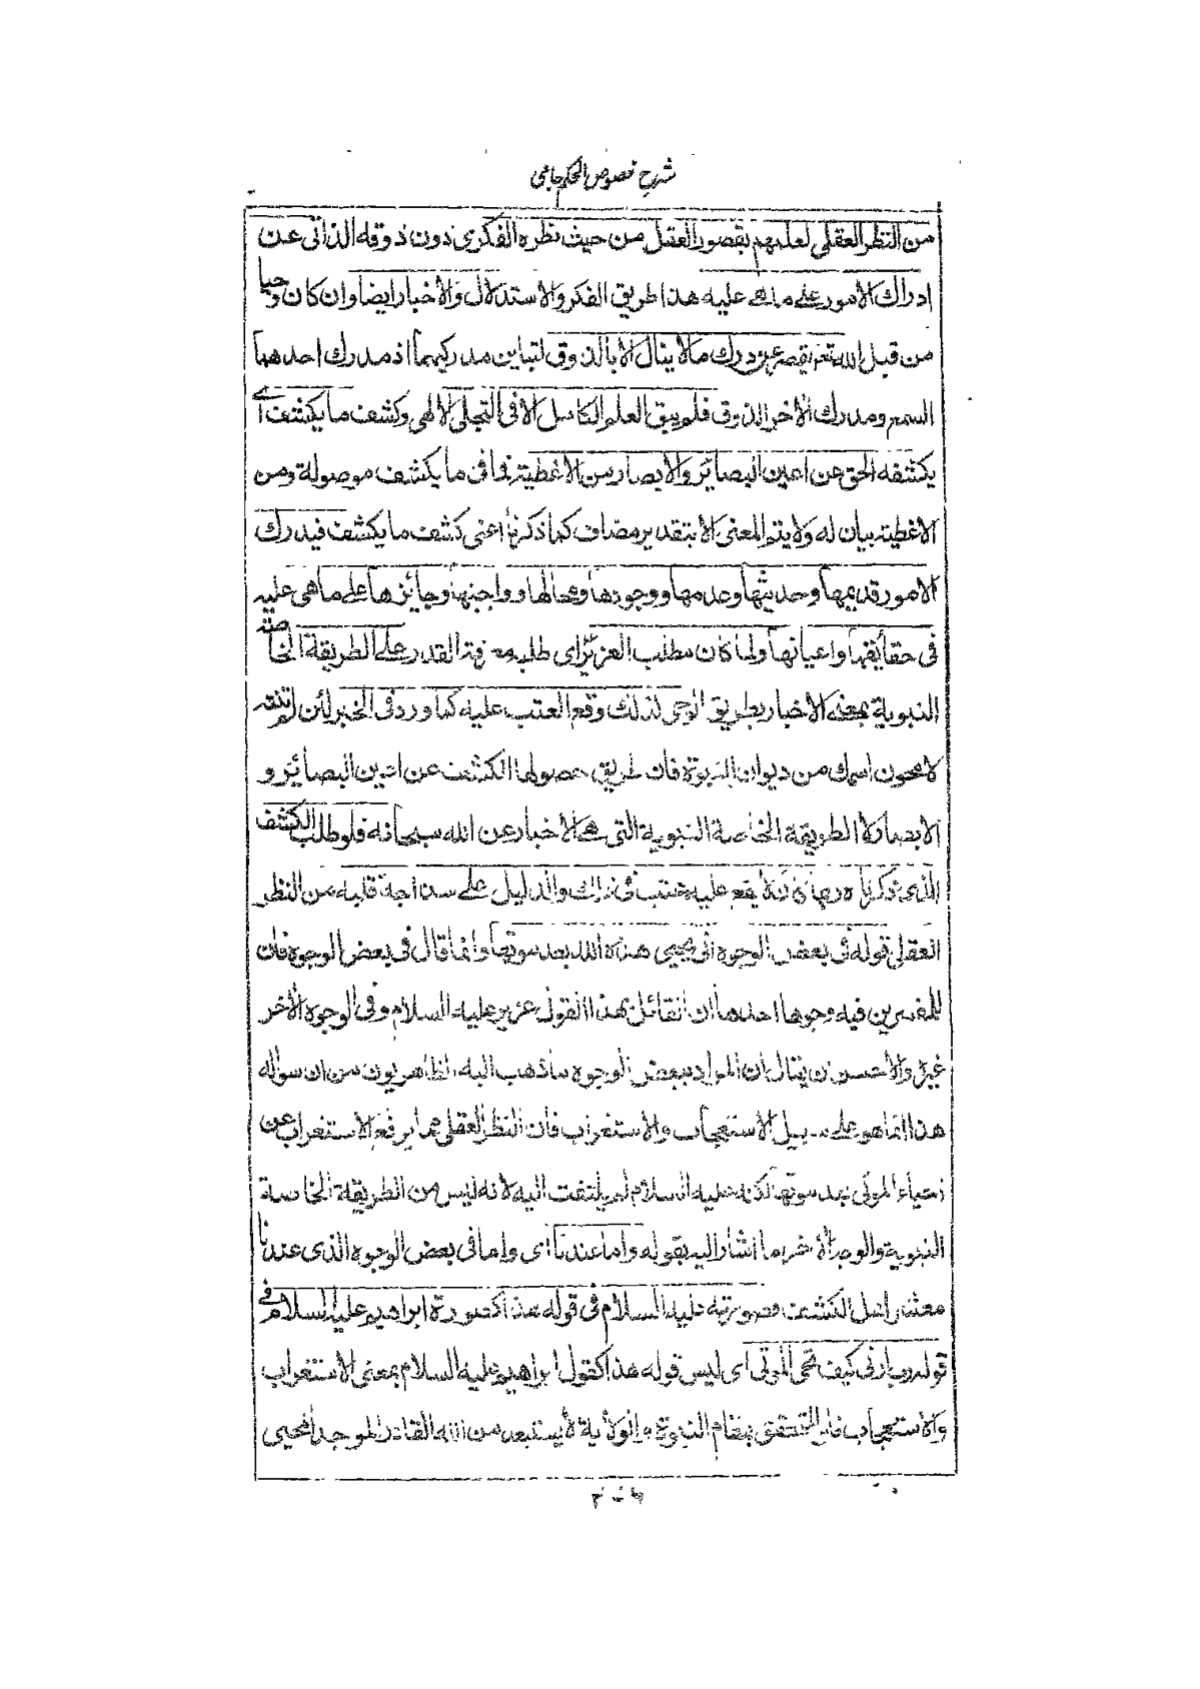 شرح فصوص الحكم جامی
من النظر العقلي لعلمهم بقصور العقل من حيث نظره الفكري دون ذوقه الذاتى عن
ادراك الامور على ما هى عليه هذا طريق الفكر والاستدلال والاخبار ايضا وان كان وحيا
من قبل الله تعالى يقصر عن درك مالا ينال الا بالذوق لتباين مدركيهما اذ مدرك احدهما
السمع ومدرك الاخر الذوق فلم يبق العلم الكامل الا فى التجلى الالهى وكشف ما يكشف اى
يكشفه الحق عن اعين البصائر والابصار من الاغطية فما فى ما يكشف موصولة ومن
الاغطية بيان له ولا يتم المعنى الا بتقدير مضاف كما ذكرنا اعنى كشف ما يكشف فيدرك
الامور قديمها وحديثها وعدمها ووجودها ومحالها وواجبها وجائزها على ماهى عليه
فى حقائقها واعيانها ولما كان مطلب العزير اى طلبه معرفة القدر على الطريقة الخاصة
النبوية بمعنى الاخبار بطريق الوحى لذلك وقع العتب عليه كما ورد فى الخبر لئن لم تنته
لامحون اسمك من ديوان النبوة فان طريق حصولها الكشف عن اعين البصائر و
الابصار لا الطريقة الخاصة النبوية التى هى الاخبار عن الله سبحانه فلو طلب الكشف
الذى ذكرناه ربما كان لا يقع عليه عتب فى ذلك والدليل على سذاجة قلبه من النظر
العقلى قوله فى بعض الوجوه انى يحيى هذه الله بعد موتها وانما قال فى بعض الوجوه فان
للمفسرين فيه وجوها احدها ان القائل بهذا القول عزير عليه السلام وفى الوجوه الاخر
غيره والاحسن ان يقال ان المراد ببعض الوجوه ما ذهب اليه الظاهريون من ان سواله
هذا انما هو على سبيل الاستعجاب والاستغراب فان النظر العقلى مما يرفع الاستغراب عن
احياء الموتى بعد موتها لكنه عليه السلام لم يلتفت اليه لانه ليس من الطريقة الخاصة
النبوية والوجه الاخر ما اشار اليه بقوله واما عندنا اى واما فى بعض الوجوه الذى عندنا
معشر اهل الكشف فصورته عليه السلام فى قوله هذا كصورة ابراهيم عليه السلام فى
قوله رب ارنى كيف تحى الموتى اى ليس قوله هذا كقول ابراهيم عليه السلام بمعنى الاستغراب
والاستعجاب فان المتحقق بمقام النبوة والولاية لا يستبعد من الله القادر الموجد المحيى